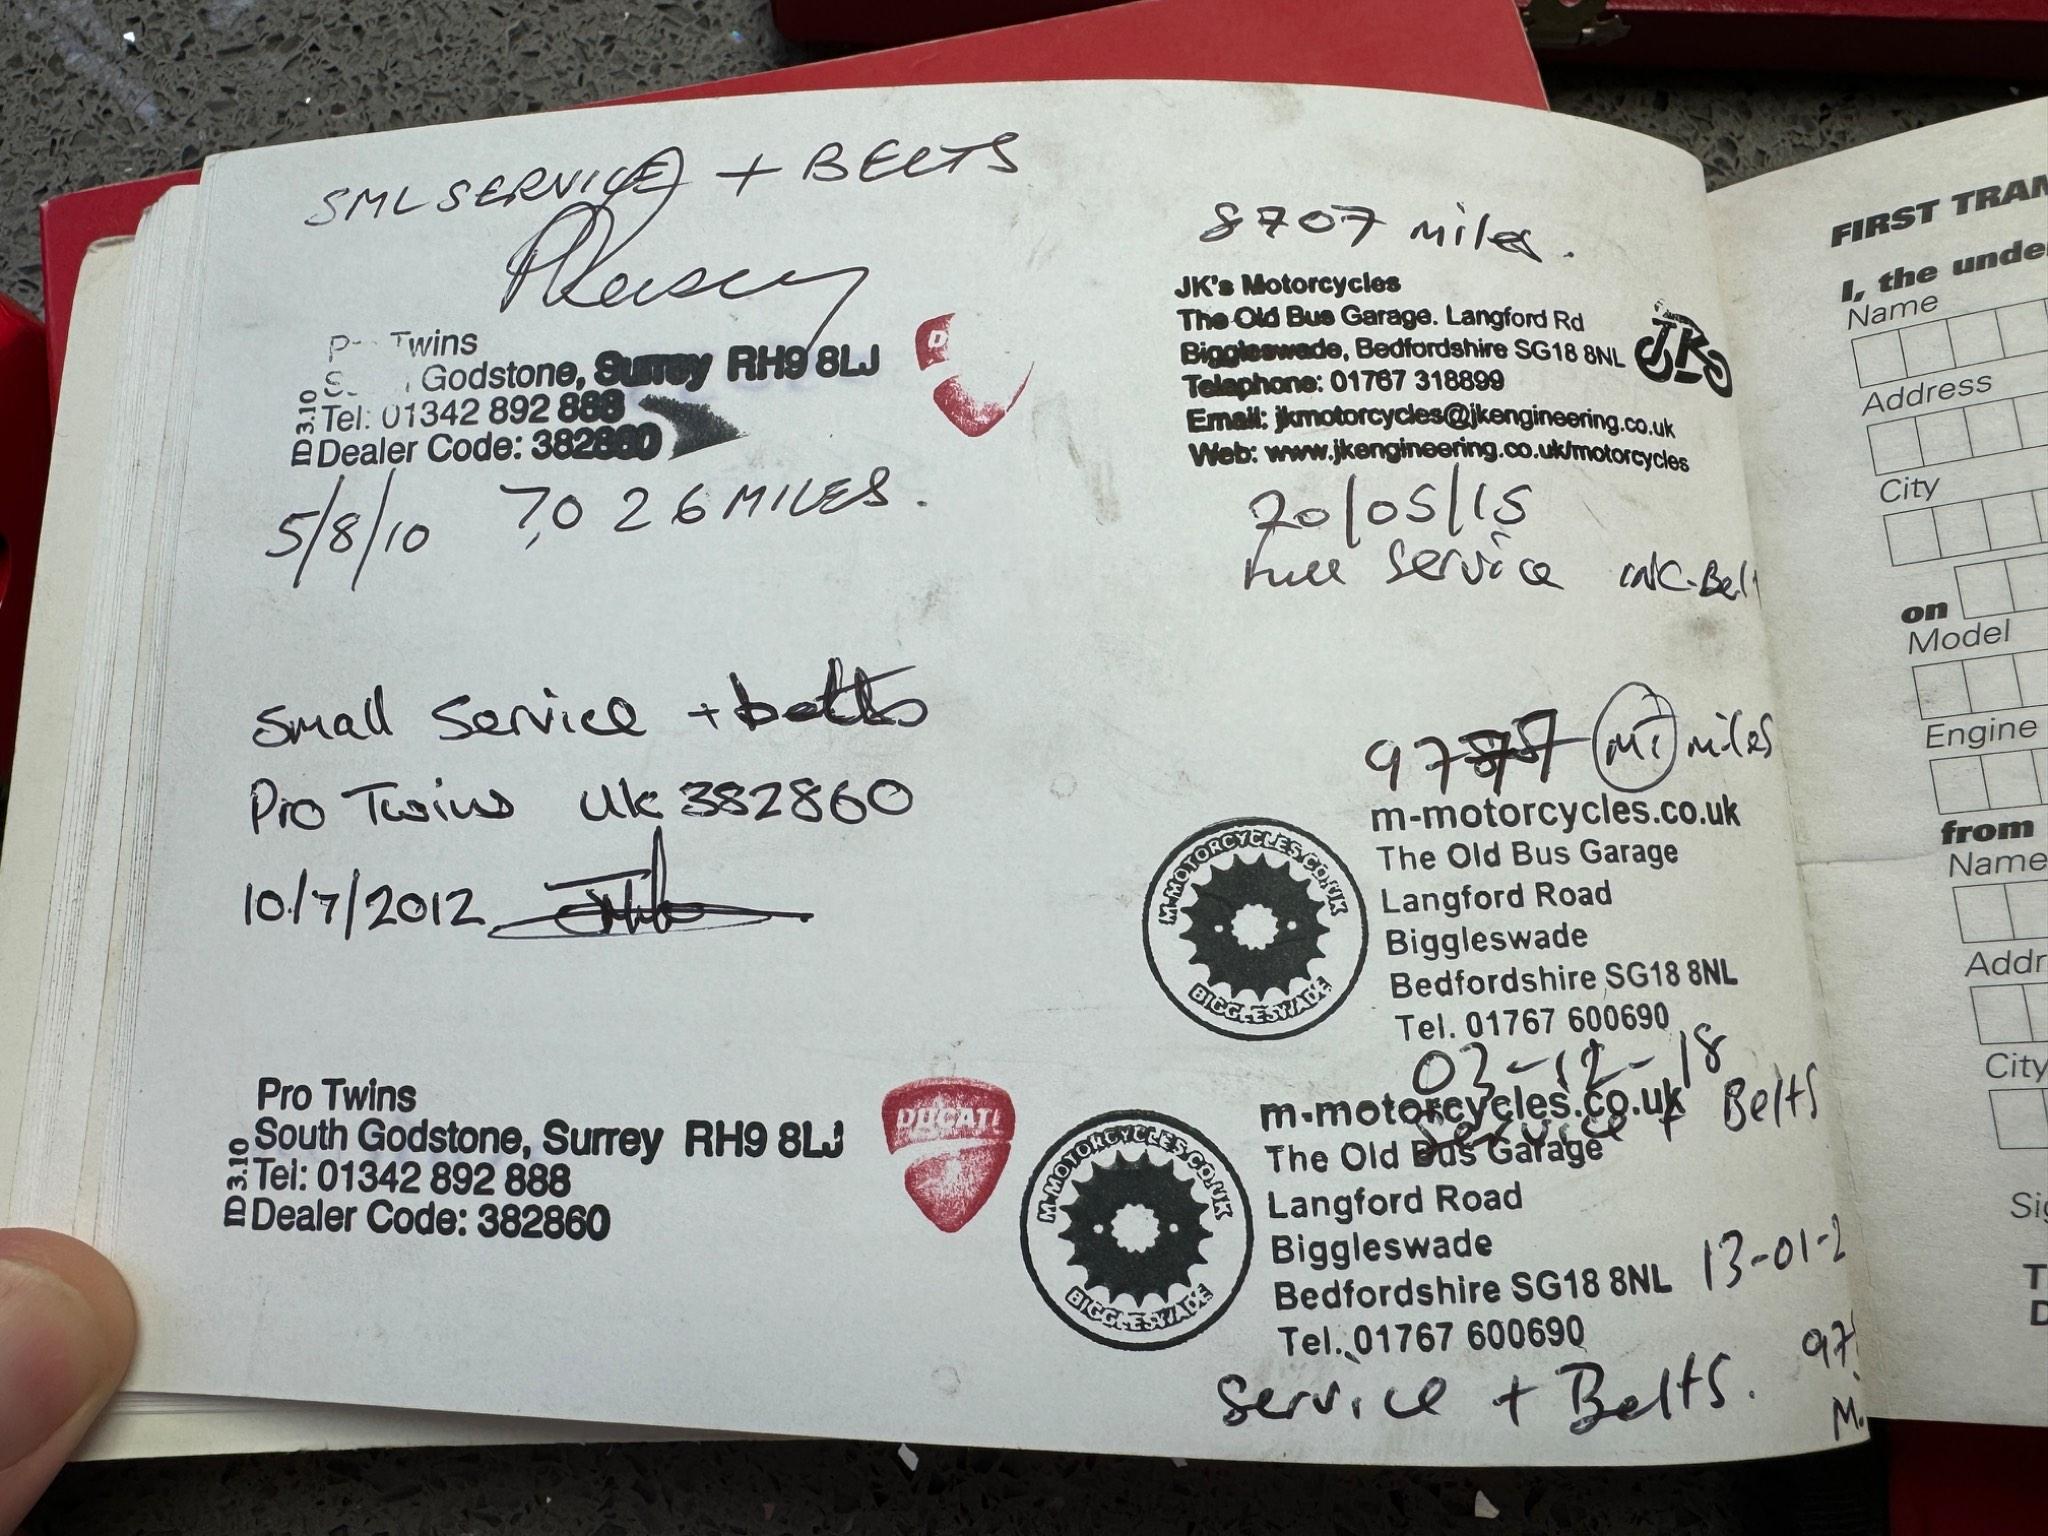 SML SERVICE + BELTS
Twins
Godstone, Surrey RH9 8LJ
Tel: 01342 892 888
Dealer Code: 382860
ID 3.10
D
5/8/10 7,026 MILES.
Small Service + belts
Pro Twins UK 382860
10/7/2012
Pro Twins
South Godstone, Surrey RH9 8LJ
Tel: 01342 892 888
Dealer Code: 382860
ID 3.10
DUCATI
8707 miles.
JK's Motorcycles
The Old Bus Garage. Langford Rd
Biggleswade, Bedfordshire SG18 8NL
Telephone: 01767 318899
Email: jkmotorcycles@jkengineering.co.uk
Web: www.jkengineering.co.uk/motorcycles
JK
20/05/15
Full Service INC. Belt
miles
m-motorcycles.co.uk
The Old Bus Garage
Langford Road
Biggleswade
Bedfordshire SG18 8NL
Tel. 01767 600690
M-MOTORCYCLES.CO.UK
BIGGLESWADE
03-12-18
Service + Belts
m-motorcycles.co.uk
The Old Bus Garage
Langford Road
Biggleswade
Bedfordshire SG18 8NL
Tel. 01767 600690
M-MOTORCYCLES.CO.UK
BIGGLESWADE
13-01-2
97
M.
Service + Belts.
FIRST TRAN
I, the unde
Name
Address
City
on
Model
Engine
from
Name
Addr
City
Sig
T
D